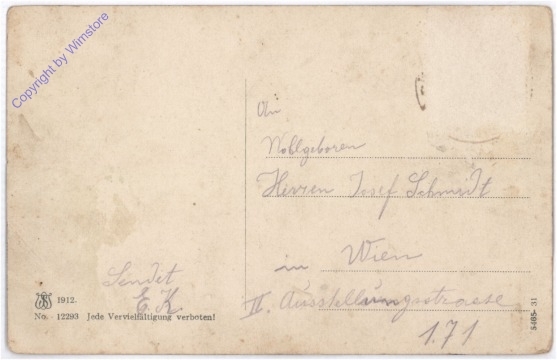 Copyright by Wimstore
An
Wohlgeboren
Herren Josef Schmidt
in Wien
II. Ausstellungsstrasse
171
Sendet
E.K.
1912.
No. 12293 Jede Vervielfältigung verboten!
5465-31